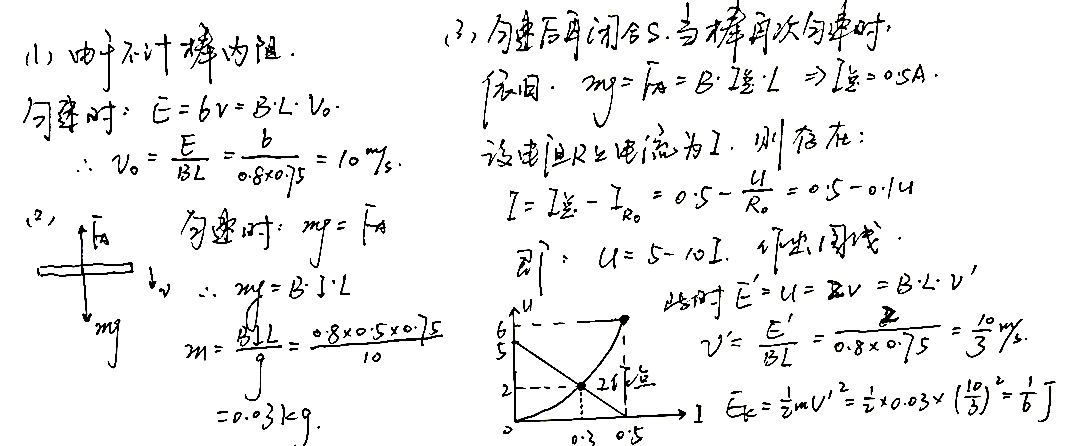 (1) 由于不计棒内阻.
匀速时: E=6V=B·L·V₀.
∴ V₀=E/BL=6/0.8×0.75=10m/s.
(2)
F_A
v
mg
匀速时: mg=F_A
∴ mg=B·I·L
m=BIL/g=0.8×0.5×0.75/10
=0.03kg.
(3) 匀速后再闭合S.当棒再次匀速时,
依旧. mg=F_A=B·I总·L ⇒I总=0.5A.
设电阻R上电流为I. 则存在:
I=I总-I_R₀=0.5-U/R₀=0.5-0.1U
即: U=5-10I. 作出图线.
此时 E'=U=2V=B·L·V'
V'=E'/BL=2/0.8×0.75=10/3 m/s.
E_K=1/2mV'²=1/2×0.03×(10/3)²=1/6 J
U
6
5
2
0
工作点
I
0.3 0.5